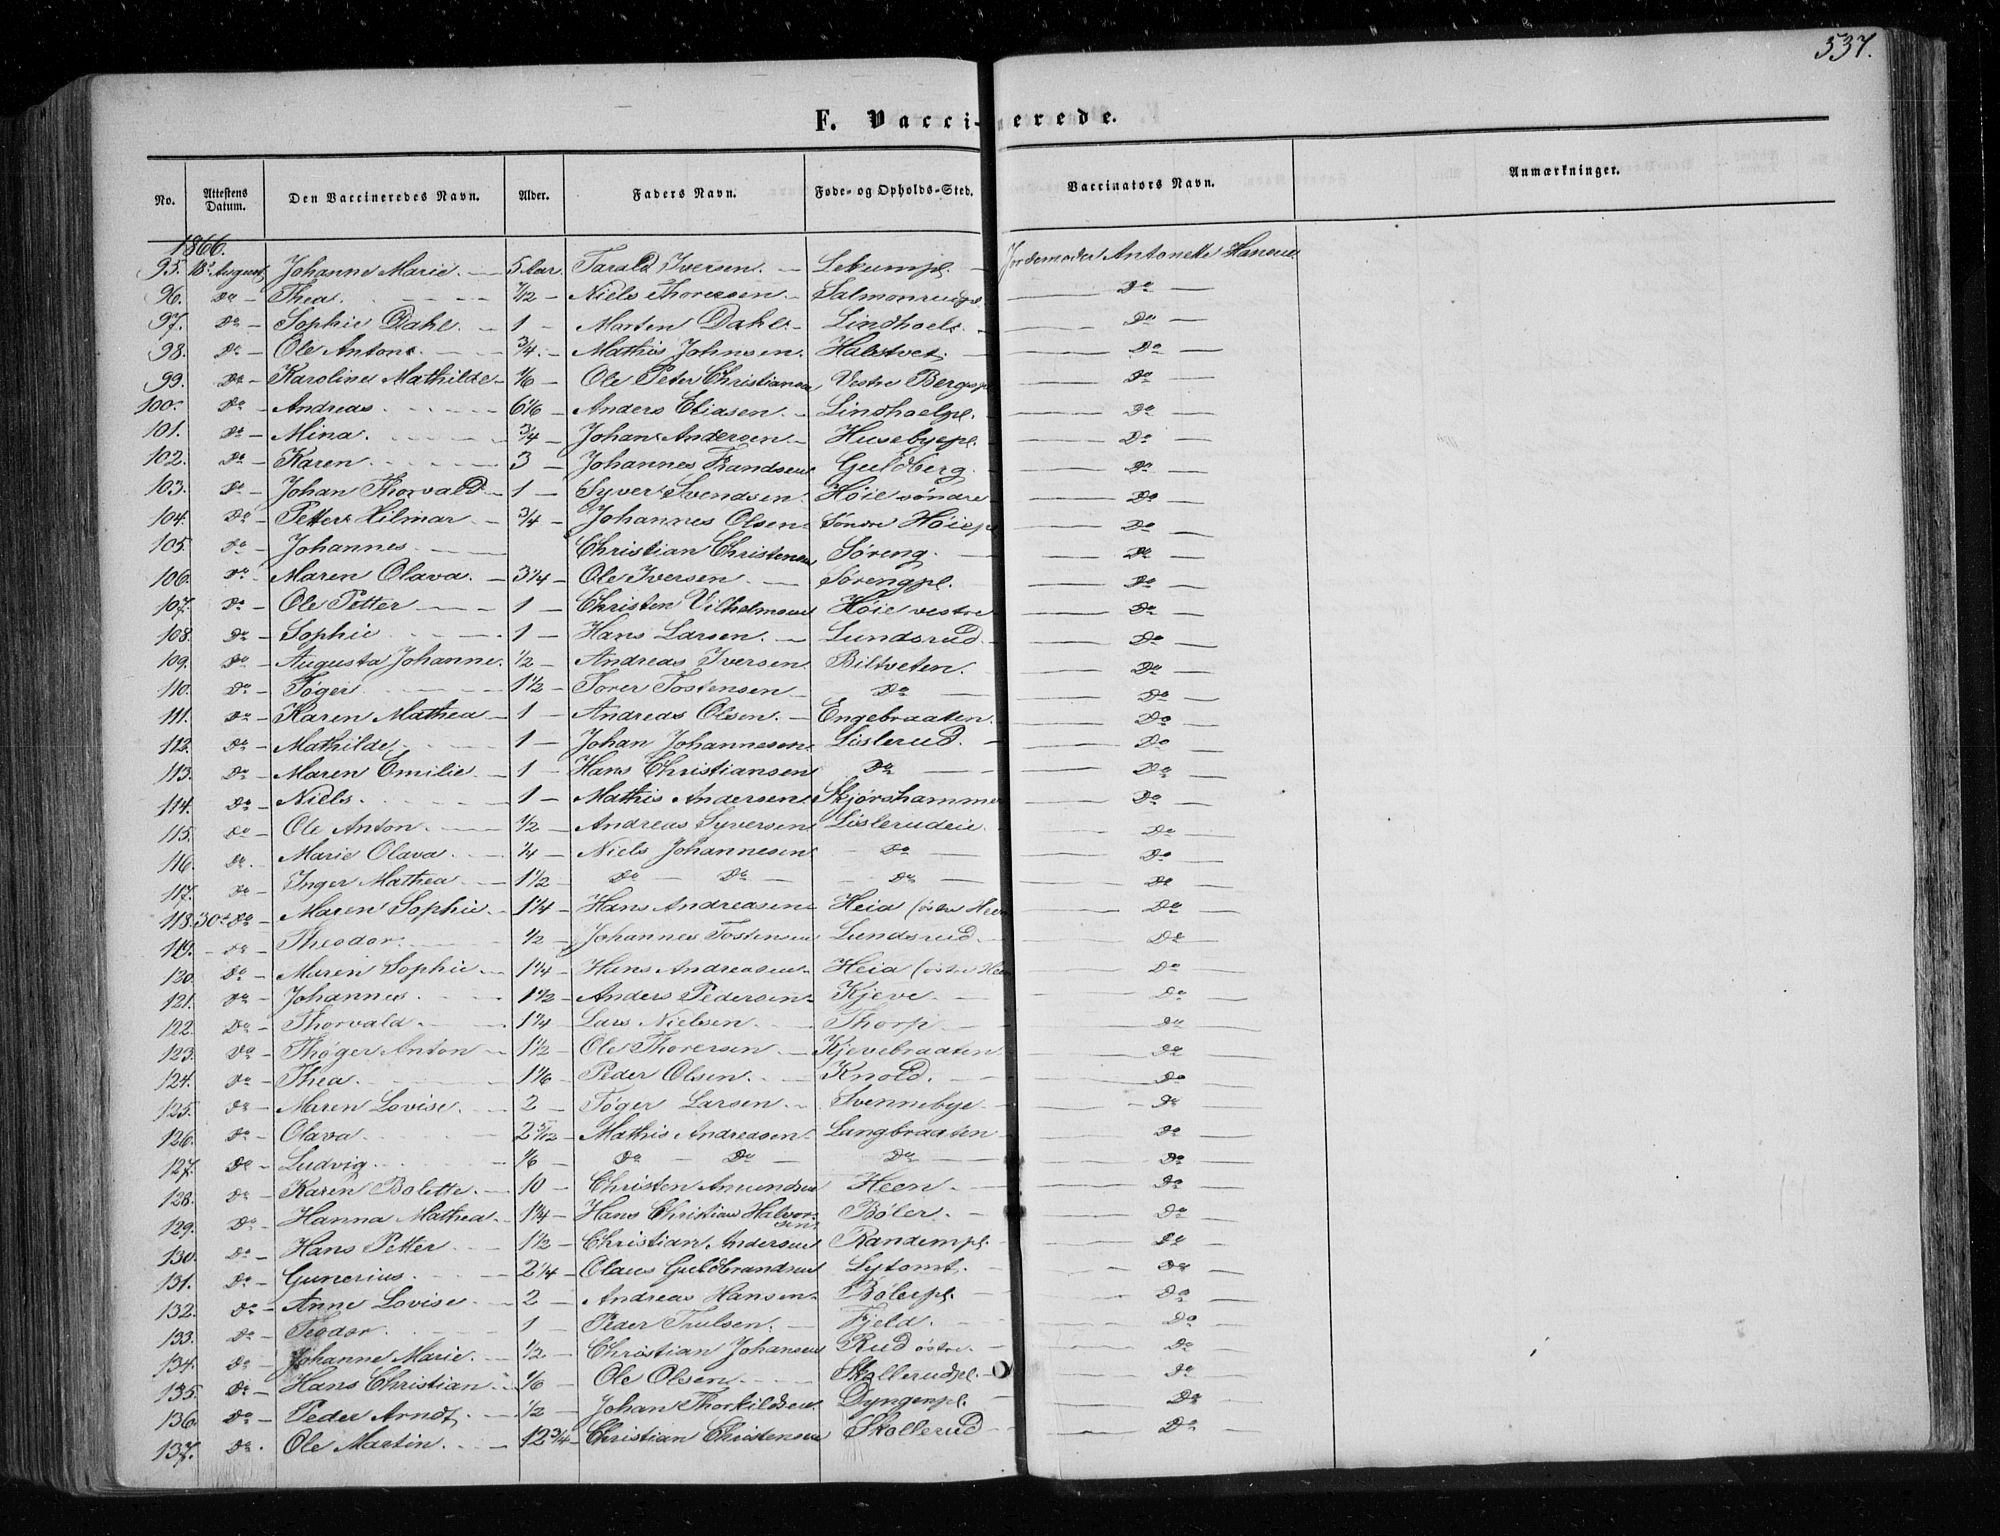 537.
F. Vaccinerede.
No. Attestens Datum. Den Vaccineredes Navn. Alder. Faders Navn. Føde- og Opholds-Sted. Vaccinators Navn. Anmærkninger.
1866.
95. 18de August Johanne Marie. 5 Aar. Tarald Iversen. Lekumpl. Jordemoder Antonette Hansen
96. Do Thea. 7/12 Niels Thoresen Salmonrudpl. Do
97. Do Sophie Dahl. 1 Morten Dahl. Lindhoel. Do
98. Do Ole Anton. 3/4 Mathis Johnsen. Halstvet. Do
99. Do Karoline Mathilde 1/6 Ole Peter Christiansen, Vestre Bergspl. Do
100. Do Andreas. 6 1/6 Anders Eliasen. Lindhoelpl. Do
101. Do Mina. 3/4 Johan Andersen. Husebyepl. Do
102. Do Karen. 3 Johannes Frandsen Guldberg. Do
103. Do Johan Thorvald 1 Syver Svendsen. Höie söndre Do
104. Do Petter Hilmar 3/4 Johannes Olsen Søndre Höiepl. Do
105. Do Johannes Christian Christensen Søreng. Do
106. Do Maren Olava. 3 1/4 Ole Iversen. Sørengpl. Do
107. Do Ole Petter 1 Christen Vilhelmsen Höie vestre Do
108. Do Sophie 1 Hans Larsen. Lundsrud Do
109. Do Augusta Johanne. 1/2 Andreas Iversen Biltveten. Do
110. Do Tøger 1 1/2 Torer Tostensen Do Do
111. Do Karen Mathea 1 Andreas Olsen. Engebraaten. Do
112. Do Mathilde 1 Johan Johannesen Lislerud. Do
113. Do Maren Emilie 1 Hans Christiansen Do Do
114. Do Niels. 1 Mathis Andersen. Skjørshammer Do
115. Do Ole Anton. 1/2 Andreas Syversen Lislerudeie. Do
116. Do Marie Olava. 1/4 Niels Johannesen Do Do
117. Do Inger Mathea 1 1/2 Do Do Do Do
118. 30te Do Maren Sophie. 1 1/4 Hans Andreasen Heia (østre Heen Do
119. Do Theodor. 1/2 Johannes Tostensen Lundsrud. Do
120. Do Maren Sophie 1 1/4 Hans Andreasen Heia (østre Heen Do
121. Do Johannes. 1 1/2 Anders Pedersen. Kjeve. Do
122. Do Thorvald. 1 1/4 Lars Nielsen. Thorp. Do
123. Do Thøger Anton 1 1/2 Ole Thoresen. Kjevebraaten. Do
124. Do Thea. 1 1/6 Peder Olsen. Knold. Do
125. Do Maren Lovise. 2 Tøger Larsen Svennebye. Do
126. Do Olava 2 5/12 Mathis Andreasen. Langbraaten Do
127. Do Ludvig. 1/6 Do Do Do Do
128. Do Karen Bolette. 10 Christen Amundsen Heen. Do
129. Do Hanna Mathea. 1 1/4 Hans Christian Halvorsen. Bøler. Do
130. Do Hans Petter 1 1/2 Christian Andersen Randempl. Do
131. Do Gunerius. 2 1/4 Olaus Guldbrandsen Lytomt. Do
132. Do Anne Lovise 2 Andreas Hansen. Bølerpl. Do
133. Do Teodor. 1 Peder Trulsen. Fjeld. Do
134. Do Johanne Marie. 1/2 Christian Johansen Rud østre. Do
135. Do Hans Christian 1/6 Ole Olsen. Skollerudpl. Do
136. Do Peder Arndt. 1/2 Johan Thorkildsen. Dyngenpl. Do
137. Do Ole Martin. 12 3/4 Christian Christensen Skollerud Do